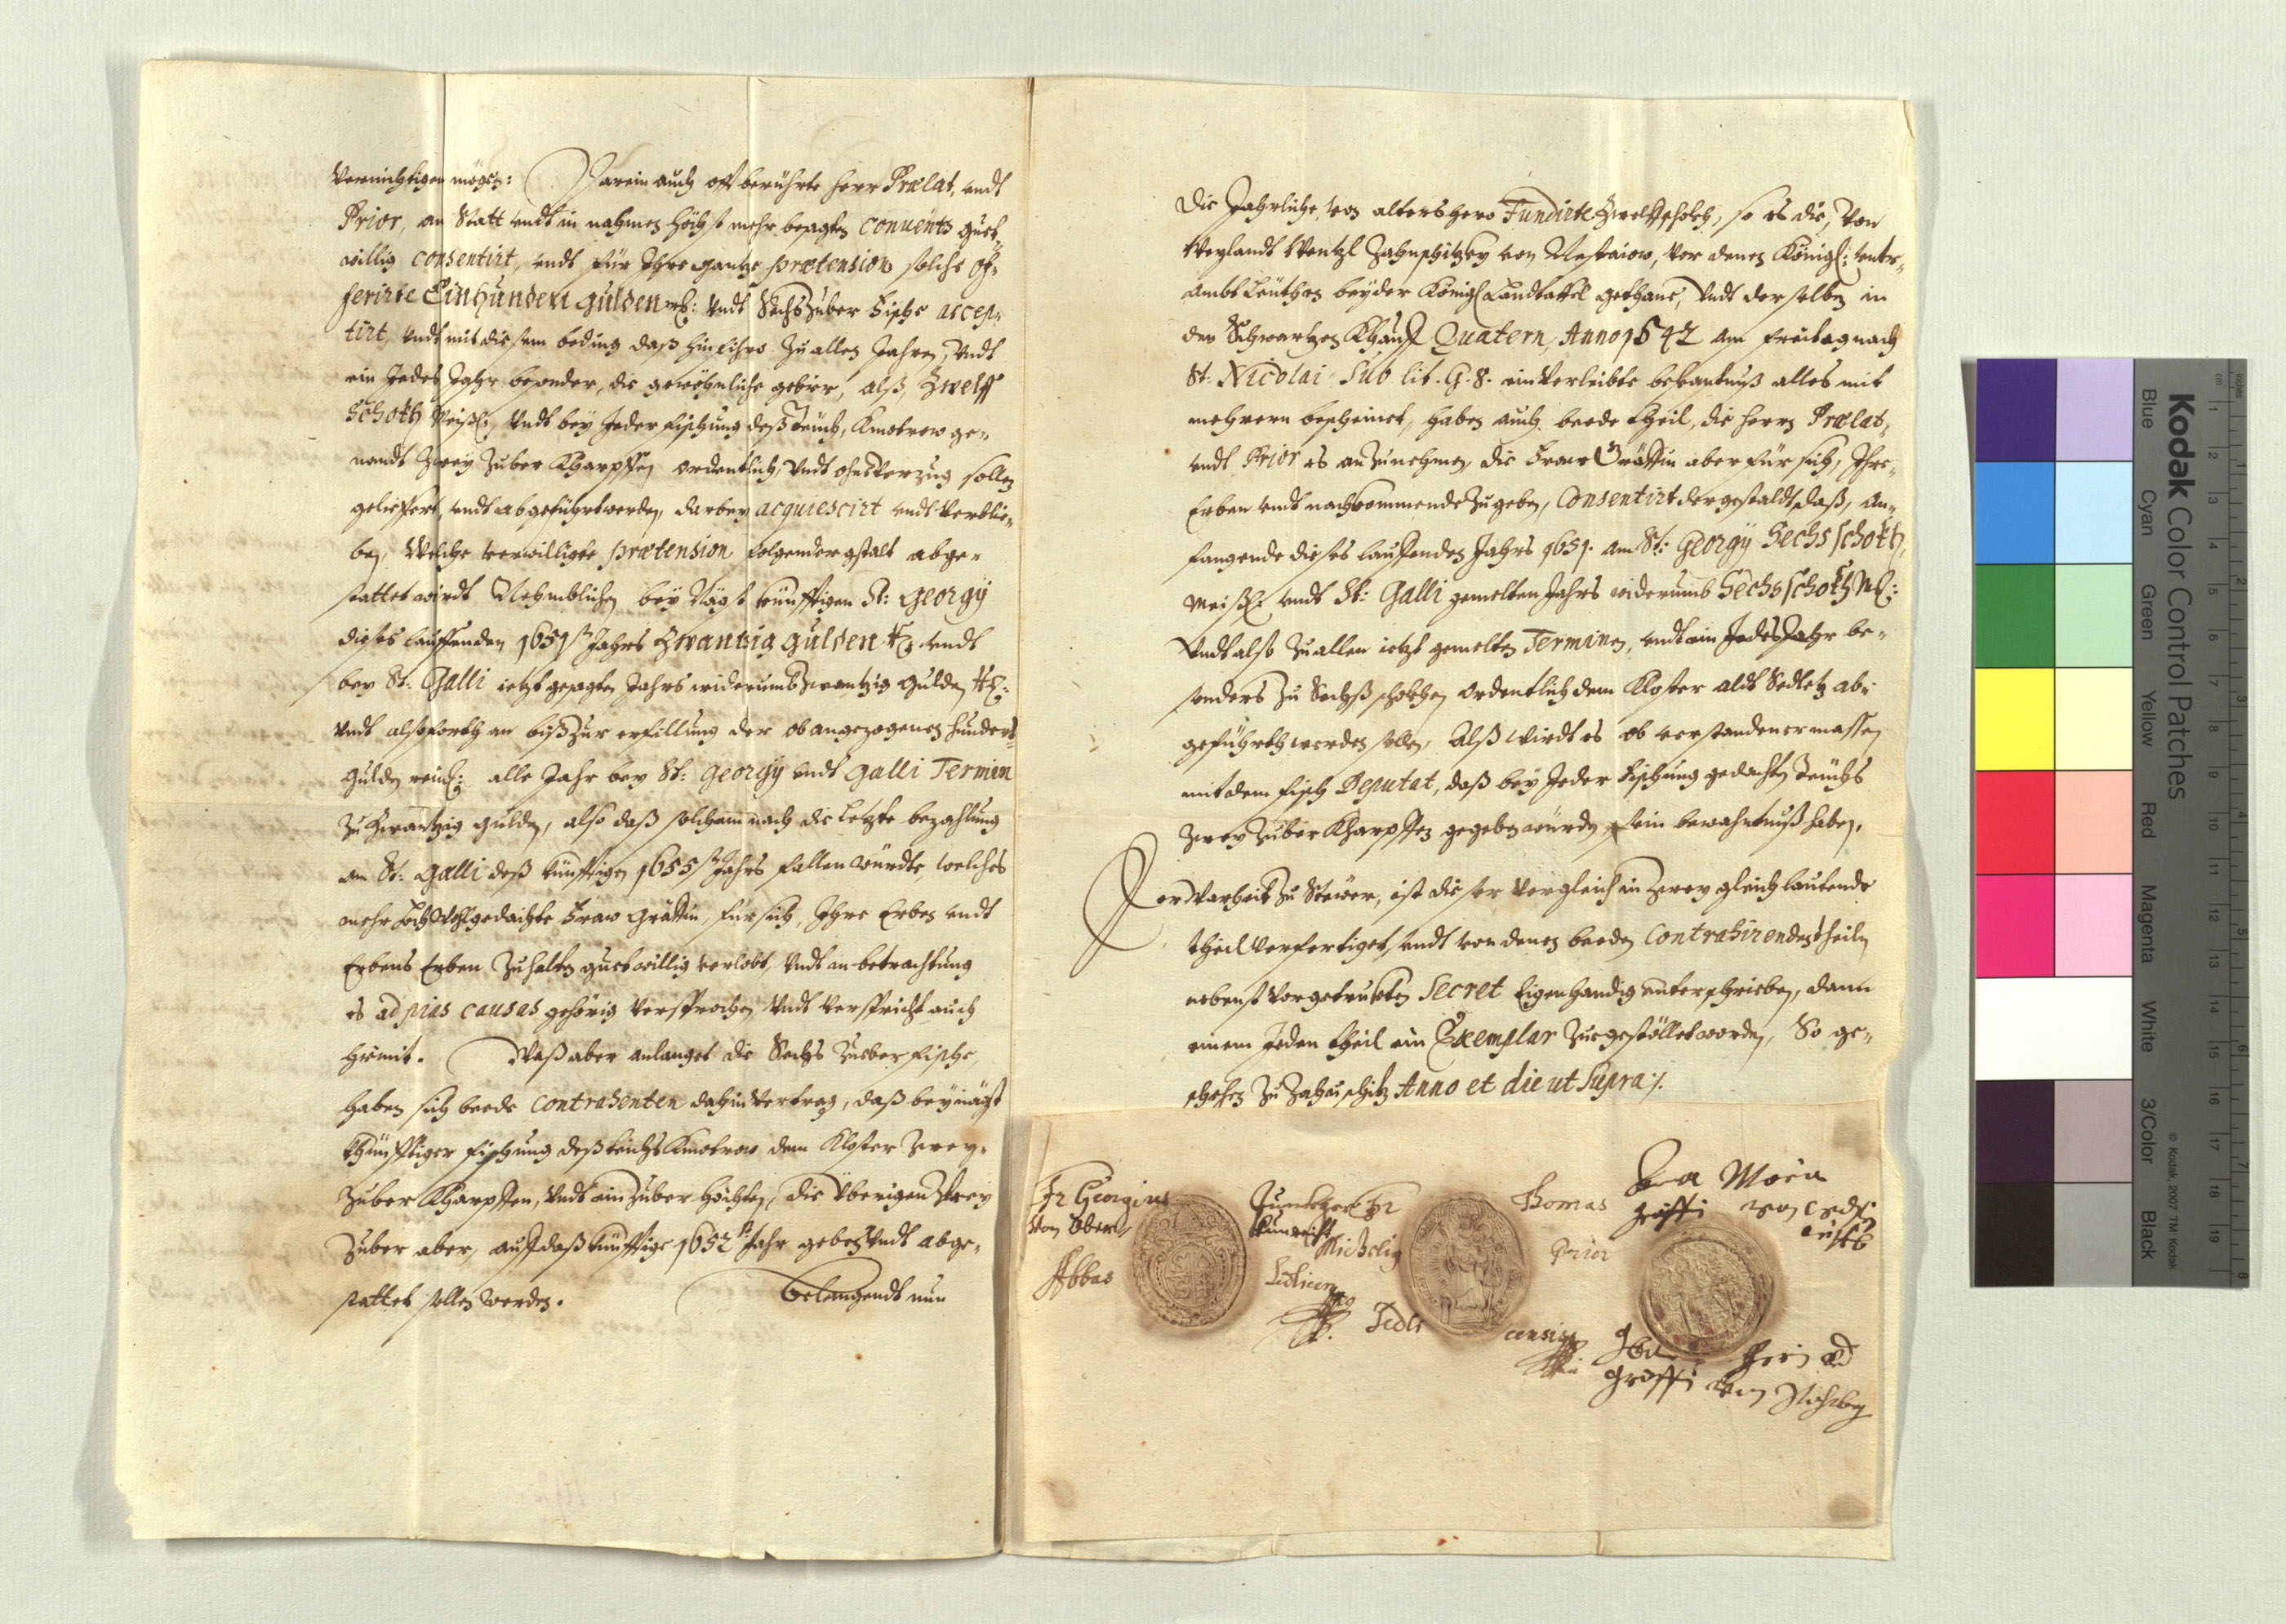 Vernichtigen mögen: Darein auch offt berührte herr Prælat, vndt
Prior, an Statt vndt in nahmen höchst mehr besagten Convents guet-
willig consentirt, vndt für Ihre gantze prætension solche of-
ferirte Einhundert gulden vndt Sechs Zuber Fische accep-
tirt, vndt mit diesem beding daß hinführo Zu allen Jahren, Vndt
ein Jedes Jahr besonder, die gewöhnliche gebier, alß, Zwelff
Schockh Meißn: Vndt bey Jeder fischung deß Teüch, Kmotrow ge-
nandt Zwey Zuber Kharpffen ordentlich, Vndt ohne Verzug sollen
gelieffert, vndt abgeführt werden, darbey acquiescirt vndt Verblie-
ben, Welche verwilligte prætension folgender gstalt abge-
stattet wirdt Nehmblichen bey Nägst künfftigen St: Georgy
dieses lauffenden 1651 Jahrs Zwantzig gulden vndt
bey St: Galli ietzt gesagten Jahrs widerumb Zwantzig gulden
Vndt also forth an biß Zur erfillung der ob angezogenen hundert-
gulden alle Jahr bey St: Georgÿ vndt Galli Termin
Zu Zwantzig gulden, also daß solchem nach die Letzte bezahlung
am St: Galli deß künfftigen 1655 Jahrs fallen würdte, welches
mehr hoch Wohlgedachte Fraw Gräffin, für sich, Ihre Erben vndt
Erbens Erben Zu halten guetwillig verlobt, Vndt in betrachtung
es ad pias causas gehörig versprochen, Vndt verspricht auch
hiemit. Waß aber anlanget die Sechs Zueber fische,
haben sich beede Contrahenten dahin Vertrag, daß bey nägst
khünfftiger fischung deß teichs Kmotrow dem Kloster Zwey-
Zuber Kharpffen, Vndt ein Zuber hechten, die Vberigen Drey
Zuber aber, auf daß künfftige 1652 Jahr geben Vndt abge-
stattet sollen werden.
Belangendt nun
Die Jahrliche, von altershero Fundirte Zwelff schokh, so es die, Von
Weylandt Wentzl von Nestaiow, vor denen Königl:
Ambt Leüthen beyder Königl Landtaffel gethane, Vndt derselben in
den Schwartzen Khauff Quatern, Anno 1542 am freitag nach
St: Nicolai Sub lit. G. 8. ein Verleibte bekantnuß alles mit
mehrern bescheinet, haben auch beede theil, die herrn Prælat,
vndt Prior es anzunehmen, die Fraw Gräffin aber für sich, Ihre-
Erben vndt nachkommende Zu geben, Consentirt dergestaldt daß, an-
fangende dieses lauffenden Jahrs 1651. am St: Georgÿ Sechs schokh,
Meißn: vndt St: Galli gemelten Jahrs widerumb Sechs schokh M:
Vndt also Zu allen ietzt gemelten Terminen, vndt ein Jedes Jahr be-
sonders Zu Sechß schokhen ordentlich dem Kloster aldt Sedletz ab-
geführth werden sollen, Alß wirdt es ob verstandener massen
mit dem fisch Deputat, daß bey Jeder fischung gedachten Teüchs
Zwey Zuber Kharpffen gegeben würden, sein bewahntnuß haben.
Der Warheit Zu Stewer, ist dieser Vergleich in Zwey gleich lautende
theil verfertiget, vndt von denen beeden Contrahirenden theilen
nebenst Vorgetrukten Secret Eigenhandig vnterschrieben, dann
einem Jeden theil ein Exemplar Zuegestöllet worden, So ge-
schehen Zu Anno et die ut Supra /.
Fr Georgius
von Ober-
Abbas
Thomas
Michelig
Prior
Sedli
censis
Eva Maria
gräffi von
Gräffi